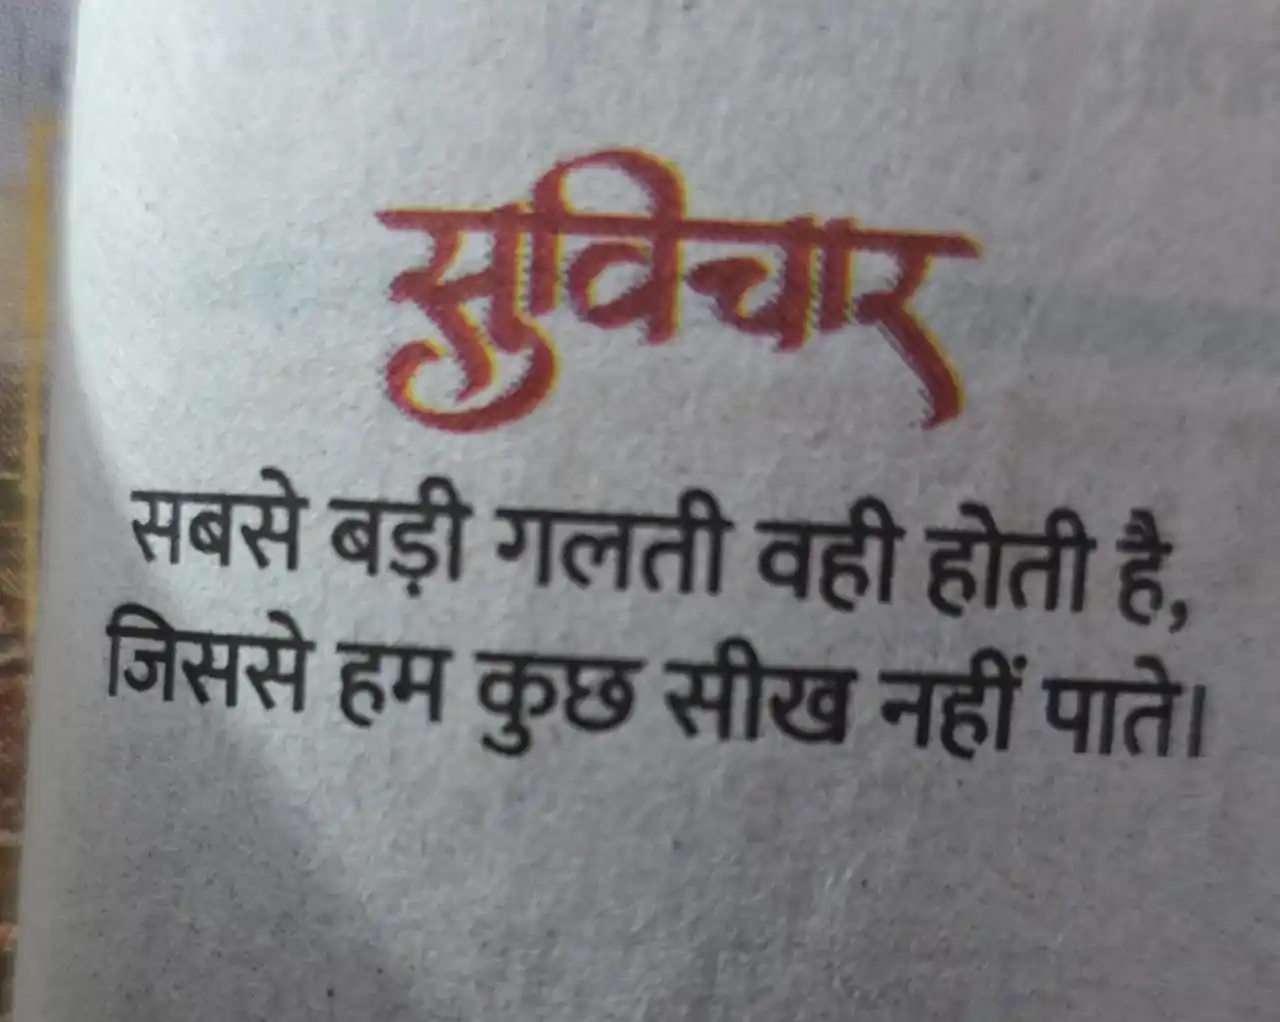 सुविचार
सबसे बड़ी गलती वही होती है,
जिससे हम कुछ सीख नहीं पाते।